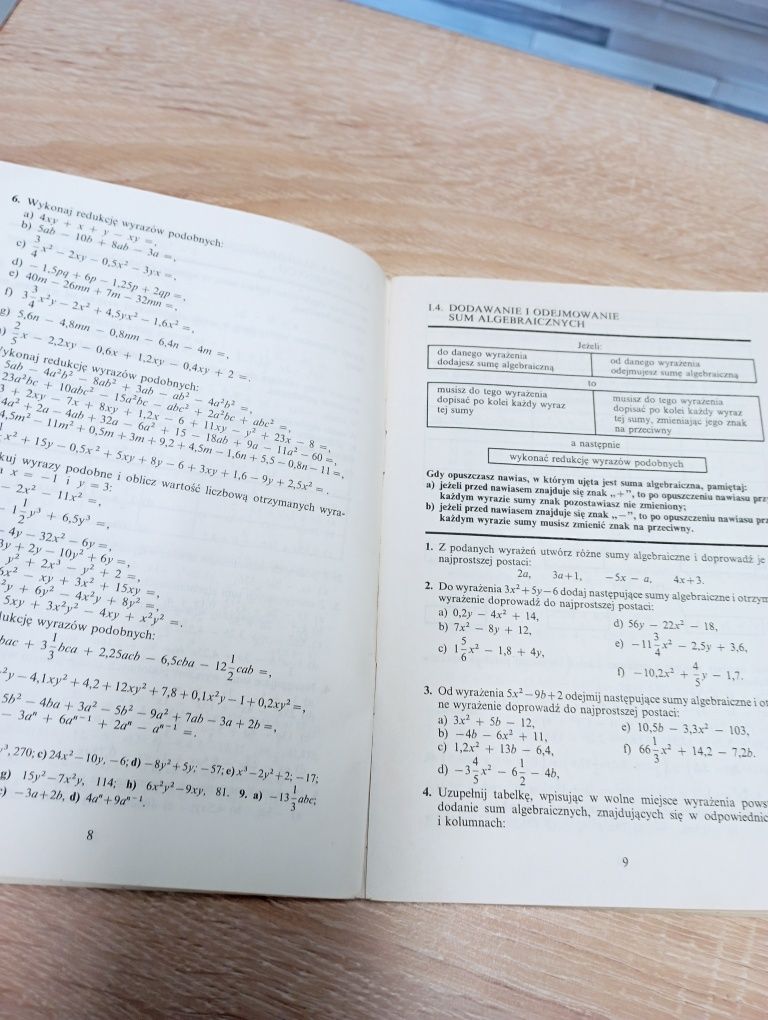 6. Wykonaj redukcję wyrazów podobnych:
a) 4xy + x + y − xy =,
b) 5ab − 10b + 8ab − 3a =,
c) 3/4 x² − 2xy − 0,5x² − 3yx =,
d) − 1,5pq + 6p − 1,25p + 2qp =,
e) 40m − 26mn + 7m − 32mn =,
f) 3 3/4 x²y − 2x² + 4,5yx² − 1,6x² =,
g) 5,6n − 4,8mn − 0,8nm − 6,4n − 4m =,
2/5 x − 2,2xy − 0,6x + 1,2xy − 0,4xy + 2 =.
ykonaj redukcję wyrazów podobnych:
5ab − 4a²b² − 8ab² + 3ab − ab² − 4a²b² =,
23a²bc + 10abc² − 15a²bc − abc² + 2a²bc + abc² =,
3 + 2xy − 7x + 8xy + 1,2x − 6 + 11xy − y² + 23x − 8 =,
4a² + 2a − 4ab + 32a − 6a² + 15 − 18ab + 9a − 11a² − 60 =,
4,5m² − 11m² + 0,5m + 3m + 9,2 + 4,5m − 1,6n + 5,5 − 0,8n − 11 =,
x² + 15y − 0,5x² + 5xy + 8y − 6 + 3xy + 1,6 − 9y + 2,5x² =.
kuj wyrazy podobne i oblicz wartość liczbową otrzymanych wyra-
x = −1 i y = 3:
− 2x² − 11x² =,
− 1 1/2 y³ + 6,5y³ =,
− 4y − 32x² − 6y =,
3y + 2y − 10y² + 6y =,
y² + 2x³ − y² + 2 =,
6x² − xy + 3x² + 15xy =,
²y + 6y² − 4x²y + 8y² =,
5xy + 3x²y² − 4xy + x²y² =.
dukcję wyrazów podobnych:
bac + 3 1/3 bca + 2,25acb − 6,5cba − 12 1/2 cab =,
²y − 4,1xy² + 4,2 + 12xy² + 7,8 + 0,1x²y − 1 + 0,2xy² =,
5b² − 4ba + 3a² − 5b² − 9a² + 7ab − 3a + 2b =,
− 3aⁿ + 6aⁿ⁻¹ + 2aⁿ − aⁿ⁻¹ =.
y³, 270; c) 24x² − 10y, −6; d) −8y² + 5y; −57; e) x³ − 2y² + 2; −17;
g) 15y² − 7x²y, 114; h) 6x²y² − 9xy, 81. 9. a) −13 1/3 abc;
c) −3a + 2b, d) 4aⁿ + 9aⁿ⁻¹.
8
1.4. DODAWANIE I ODEJMOWANIE
SUM ALGEBRAICZNYCH
Jeżeli:
do danego wyrażenia
dodajesz sumę algebraiczną
od danego wyrażenia
odejmujesz sumę algebraiczną
to
musisz do tego wyrażenia
dopisać po kolei każdy wyraz
tej sumy
musisz do tego wyrażenia
dopisać po kolei każdy wyraz
tej sumy, zmieniając jego znak
na przeciwny
a następnie
wykonać redukcję wyrazów podobnych
Gdy opuszczasz nawias, w którym ujęta jest suma algebraiczna, pamiętaj:
a) jeżeli przed nawiasem znajduje się znak „+”, to po opuszczeniu nawiasu prz
każdym wyrazie sumy znak pozostawiasz nie zmieniony;
b) jeżeli przed nawiasem znajduje się znak „−”, to po opuszczeniu nawiasu prz
każdym wyrazie sumy musisz zmienić znak na przeciwny.
1. Z podanych wyrażeń utwórz różne sumy algebraiczne i doprowadź je
najprostszej postaci:
2a, 3a + 1, −5x − a, 4x + 3.
2. Do wyrażenia 3x² + 5y − 6 dodaj następujące sumy algebraiczne i otrzym
wyrażenie doprowadź do najprostszej postaci:
a) 0,2y − 4x² + 14,
b) 7x² − 8y + 12,
c) 1 5/6 x² − 1,8 + 4y,
d) 56y − 22x² − 18,
e) −11 3/4 x² − 2,5y + 3,6,
f) −10,2x² + 4/5 y − 1,7.
3. Od wyrażenia 5x² − 9b + 2 odejmij następujące sumy algebraiczne i ot
ne wyrażenie doprowadź do najprostszej postaci:
a) 3x² + 5b − 12,
b) −4b − 6x² + 11,
c) 1,2x² + 13b − 6,4,
d) −3 4/5 x² − 6 1/2 − 4b,
e) 10,5b − 3,3x² − 103,
f) 66 1/3 x² + 14,2 − 7,2b.
4. Uzupełnij tabelkę, wpisując w wolne miejsce wyrażenia pows
dodanie sum algebraicznych, znajdujących się w odpowiednic
i kolumnach:
9